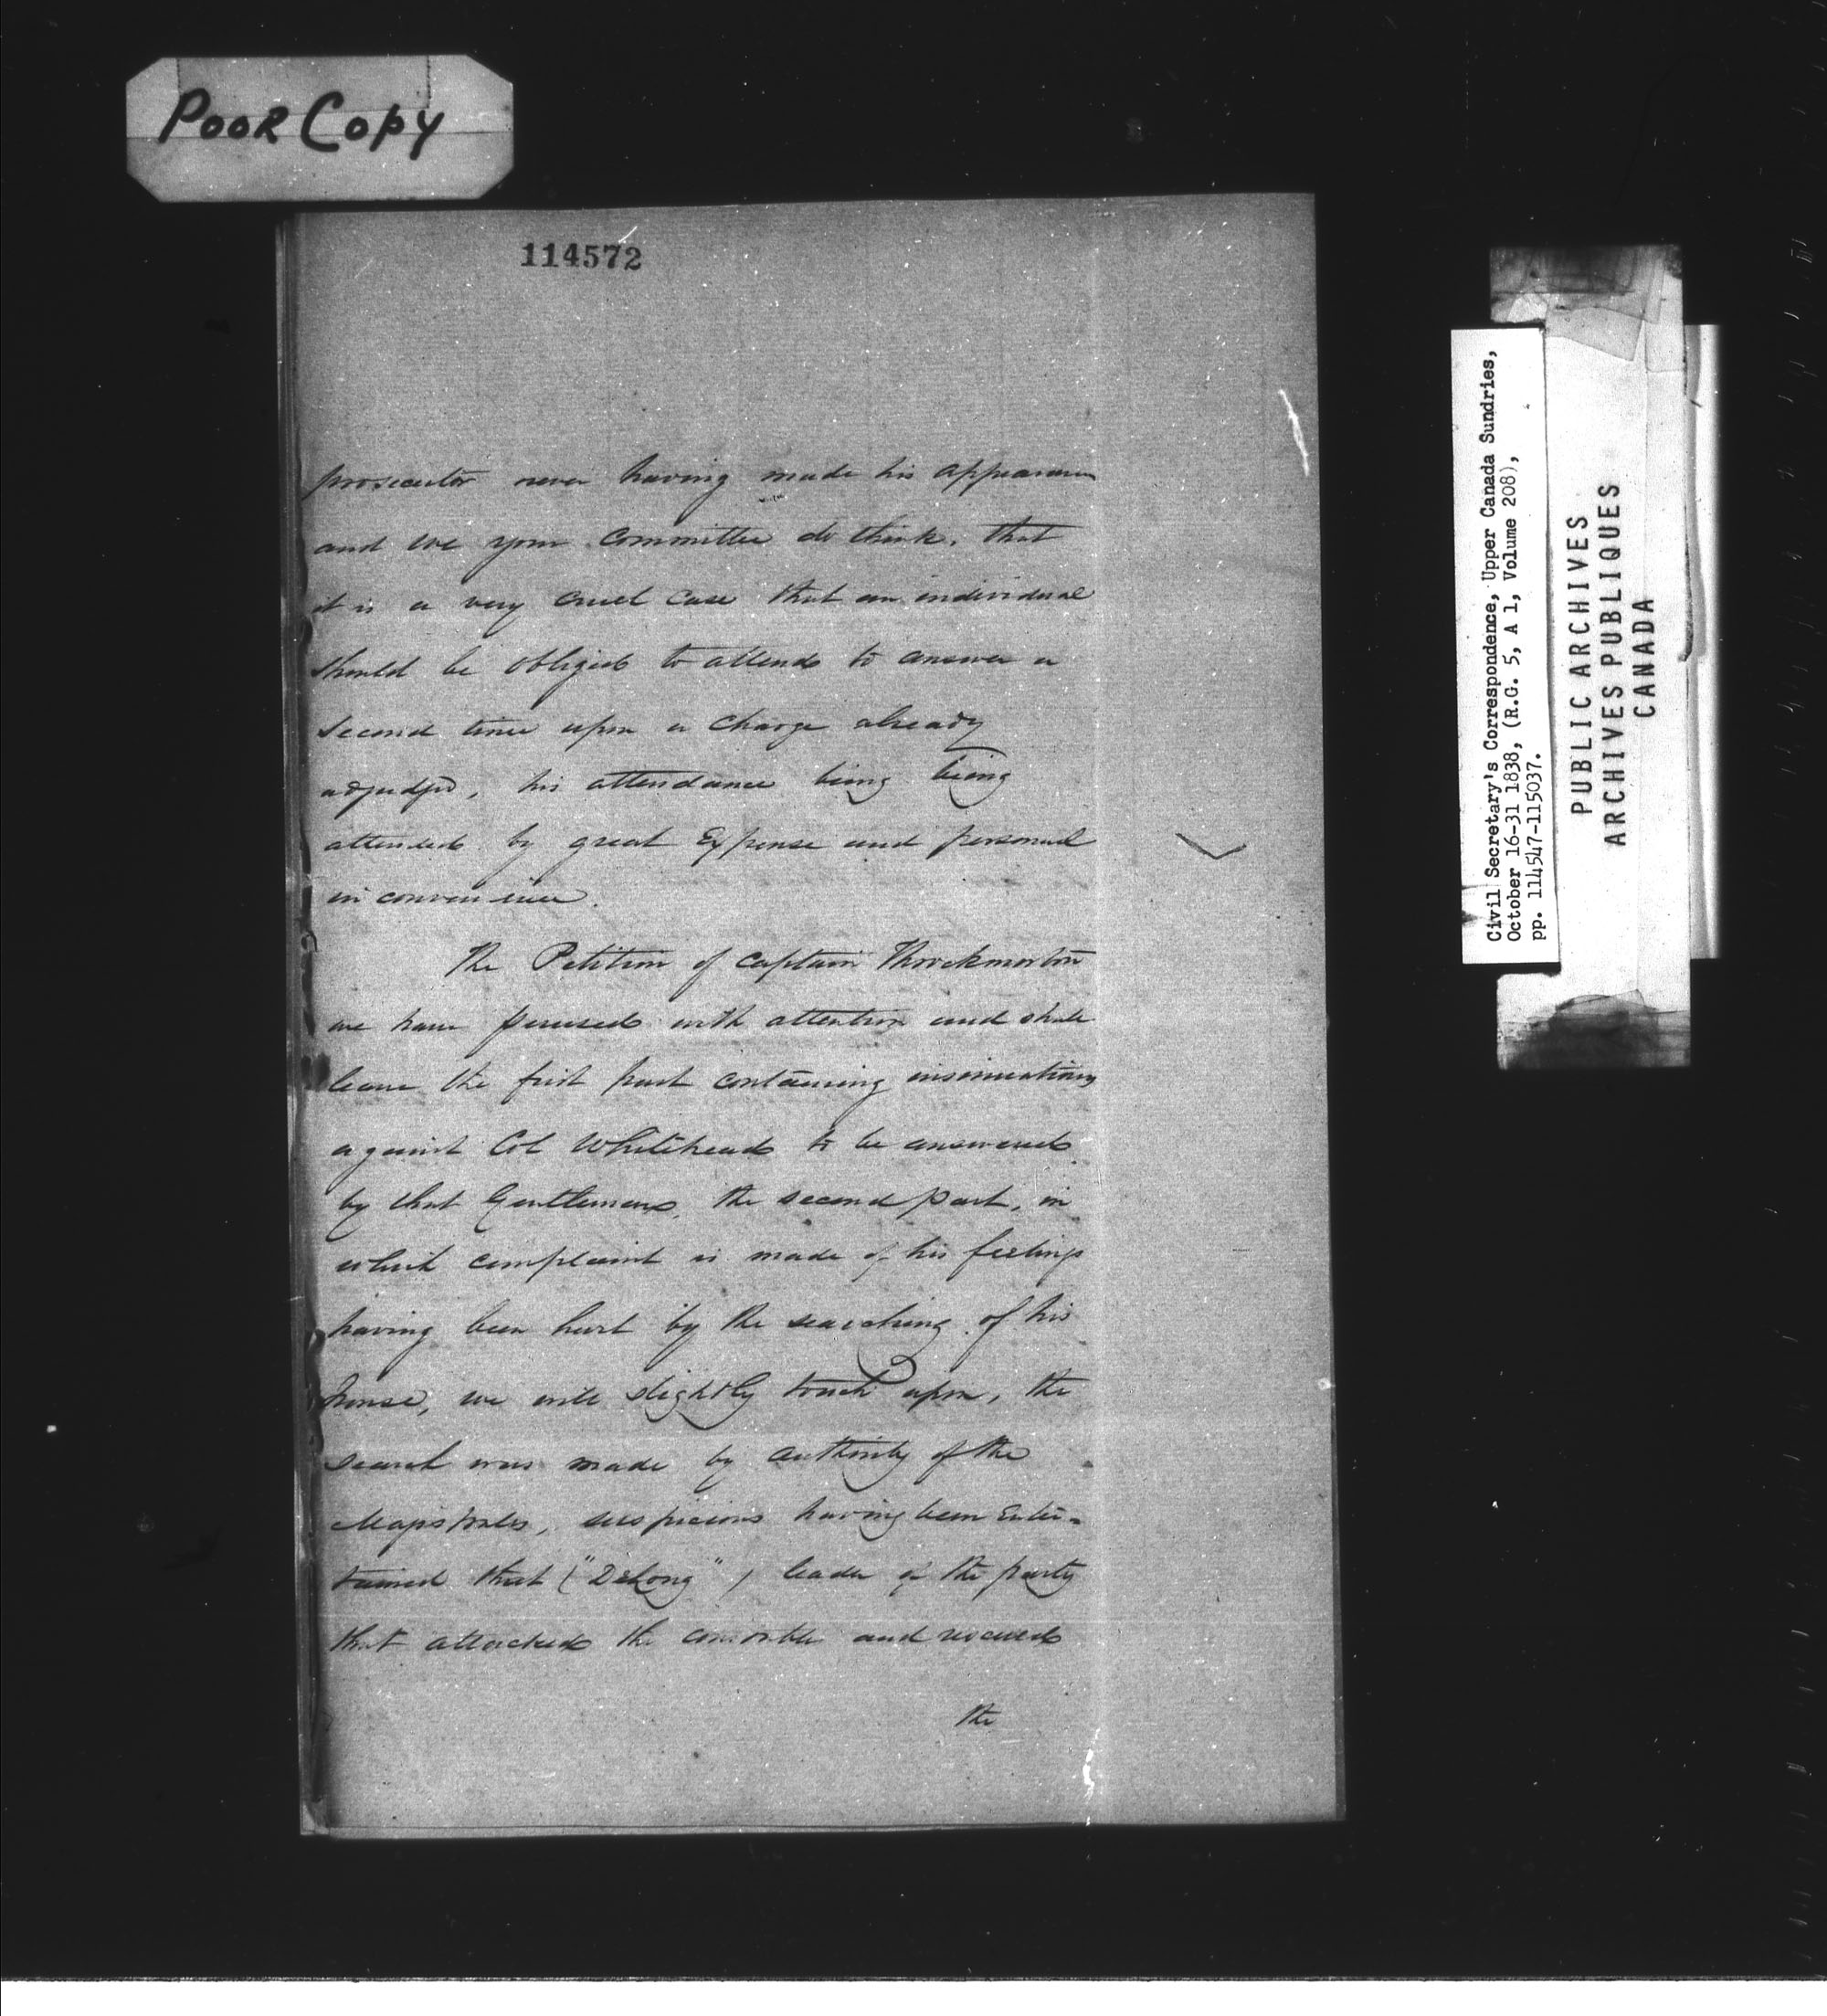 Poor Copy
114572
prosecutor never having made his appearance
and we your Committee do think, that
it is a very cruel case that an individual
should be obliged to attend to answer a
second time upon a charge already
adjudged, his attendance being being
attended by great Expense and personal
inconvenience.
The Petition of Captain Throckmorton
we have perused with attention and shall
leave the first part containing insinuations
against Col Whitehead to be answered
by that Gentleman, the second part, in
which complaint is made of his feelings
having been hurt by the searching of his
house, we will slightly touch upon, the
search was made by authority of the
Magistrates, suspicions having been Enter=
tained that ("DeLong") leader of the party
that attacked the constable and rescued
the
Civil Secretary's Correspondence, Upper Canada Sundries,
October 16-31 1838, (R.G. 5, A 1, Volume 208),
pp. 114547-115037.
PUBLIC ARCHIVES
ARCHIVES PUBLIQUES
CANADA